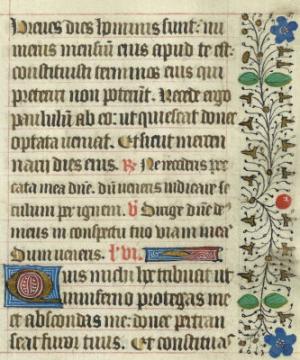 Breves dies hominis sunt: nu
merus mensium eius apud te est:
constituisti terminos eius qui
preteriri non poterunt. Recede ergo
paululum ab eo: ut quiescat donec
optata veniat. Et sicut mercen
narii dies eius. R Ne recorderis pec
cata mea dne. dum veneris iudicare se
culum per ignem. V Dirige dne de
meus in conspectu tuo viam mea
Dum veneris. l' vi.
Quis michi hoc tribuat ut
in inferno protegas me
et abscondas me: donec pertran
seat furor tuus. Et constituas